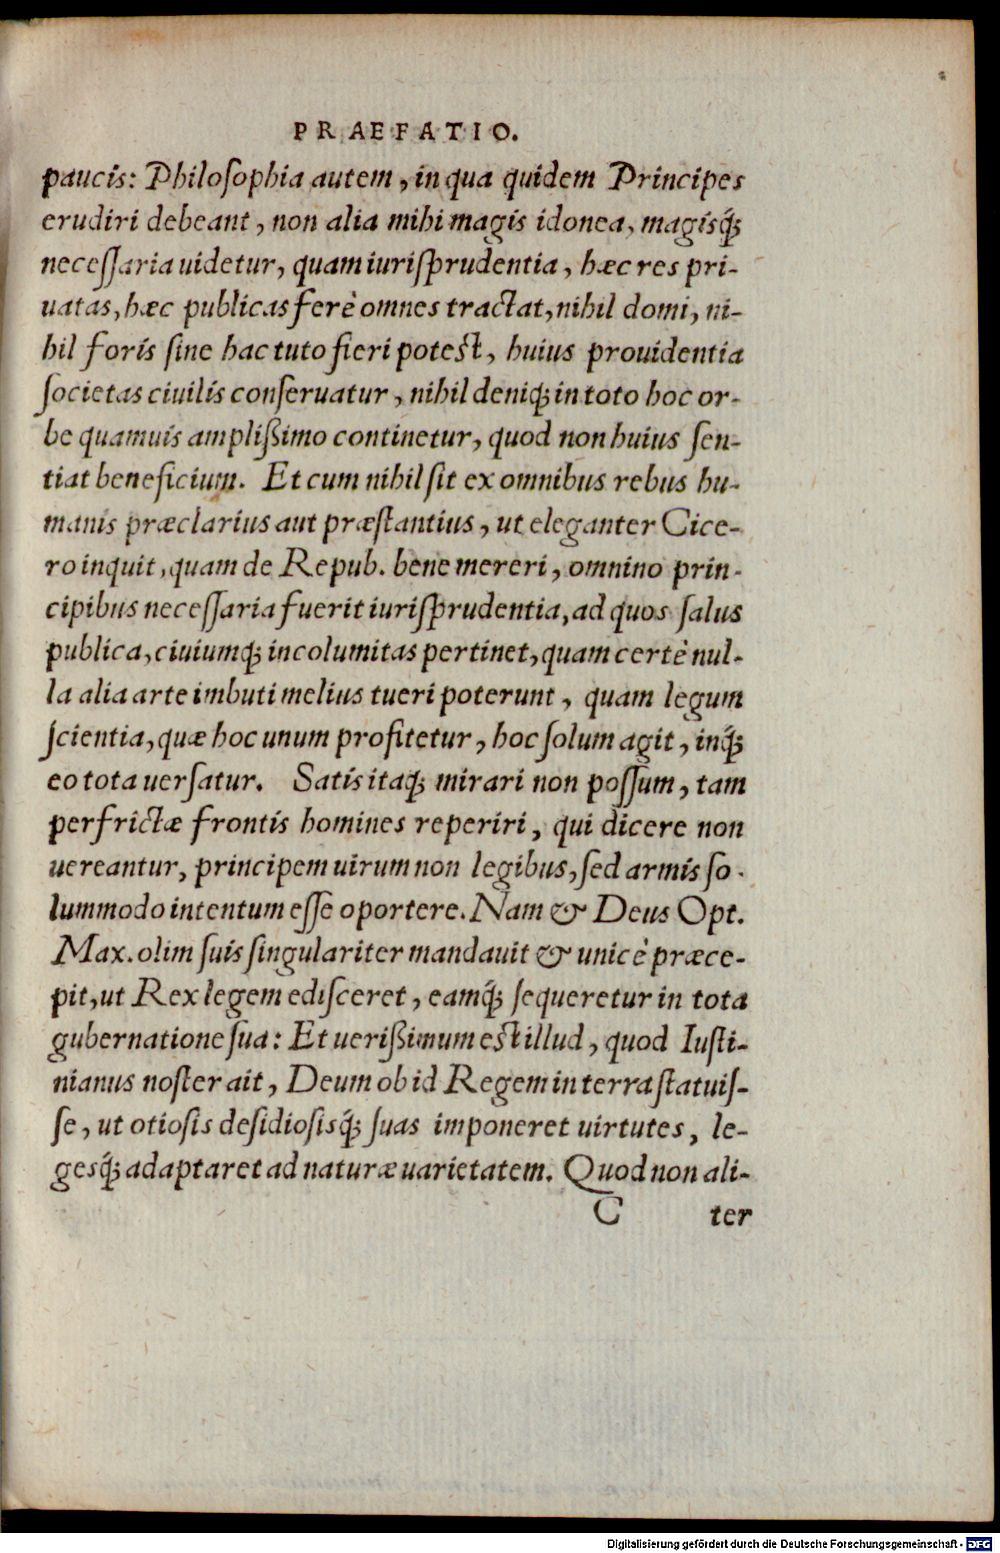 PRAEFATIO.
paucis: Philoſophia autem, in qua quidem Principes
erudiri debeant, non alia mihi magis idonea, magisq́;
neceſſaria uidetur, quam iuriſprudentia, hæc res pri-
uatas, hæc publicas ferè omnes tractat, nihil domi, ni-
hil foris ſine hac tuto fieri poteſt, huius prouidentia
ſocietas ciuilis conſeruatur, nihil deniq; in toto hoc or-
be quamuis amplißimo continetur, quod non huius ſen-
tiat beneficium. Et cum nihil ſit ex omnibus rebus hu-
manis præclarius aut præſtantius, ut eleganter Cice-
ro inquit, quam de Repub. bene mereri, omnino prin-
cipibus neceſſaria fuerit iuriſprudentia, ad quos ſalus
publica, ciuiumq; incolumitas pertinet, quam certè nul-
la alia arte imbuti melius tueri poterunt, quam legum
ſcientia, quæ hoc unum profitetur, hoc ſolum agit, inq́;
eo tota uerſatur. Satis itaq; mirari non poſſum, tam
perfrictæ frontis homines reperiri, qui dicere non
uereantur, principem uirum non legibus, ſed armis ſo-
lummodo intentum eſſe oportere. Nam & Deus Opt.
Max. olim ſuis ſingulariter mandauit & unicè præce-
pit, ut Rex legem ediſceret, eamq́; ſequeretur in tota
gubernatione ſua: Et uerißimum eſt illud, quod Iuſti-
nianus noſter ait, Deum ob id Regem in terra ſtatuiſ-
ſe, ut otioſis deſidioſisq́; ſuas imponeret uirtutes, le-
gesq́; adaptaret ad naturæ uarietatem. Quod non ali-
C ter
Digitalisierung gefördert durch die Deutsche Forschungsgemeinschaft - DFG